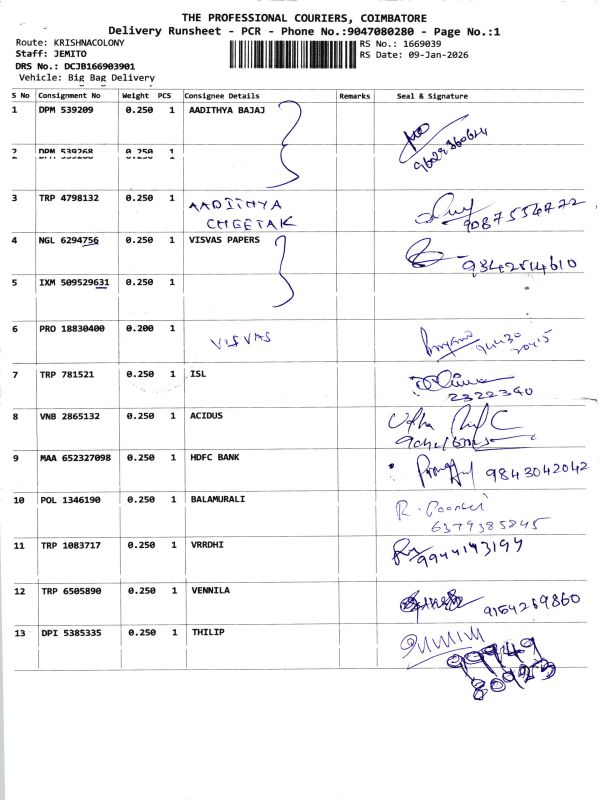 THE PROFESSIONAL COURIERS, COIMBATORE
Delivery Runsheet - PCR - Phone No.:9047080280 - Page No.:1
Route: KRISHNACOLONY
RS No.: 1669039
Staff: JEMITO
RS Date: 09-Jan-2026
DRS No.: DCJB166903901
Vehicle: Big Bag Delivery
S No Consignment No Weight PCS Consignee Details Remarks Seal & Signature
1 DPM 539209 0.250 1 AADITHYA BAJAJ
2 DPM 539268 0.250 1
3 TRP 4798132 0.250 1 AADITHYA CHEETAK
9087554772
4 NGL 6294756 0.250 1 VISVAS PAPERS
9342514610
5 IXM 509529631 0.250 1
6 PRO 18830400 0.200 1 VISVAS
7 TRP 781521 0.250 1 ISL
2322390
8 VNB 2865132 0.250 1 ACIDUS
9 MAA 652327098 0.250 1 HDFC BANK
9843042042
10 POL 1346190 0.250 1 BALAMURALI
6379385845
11 TRP 1083717 0.250 1 VRRDHI
9944193194
12 TRP 6505890 0.250 1 VENNILA
9154269860
13 DPI 5385335 0.250 1 THILIP
99949
80923